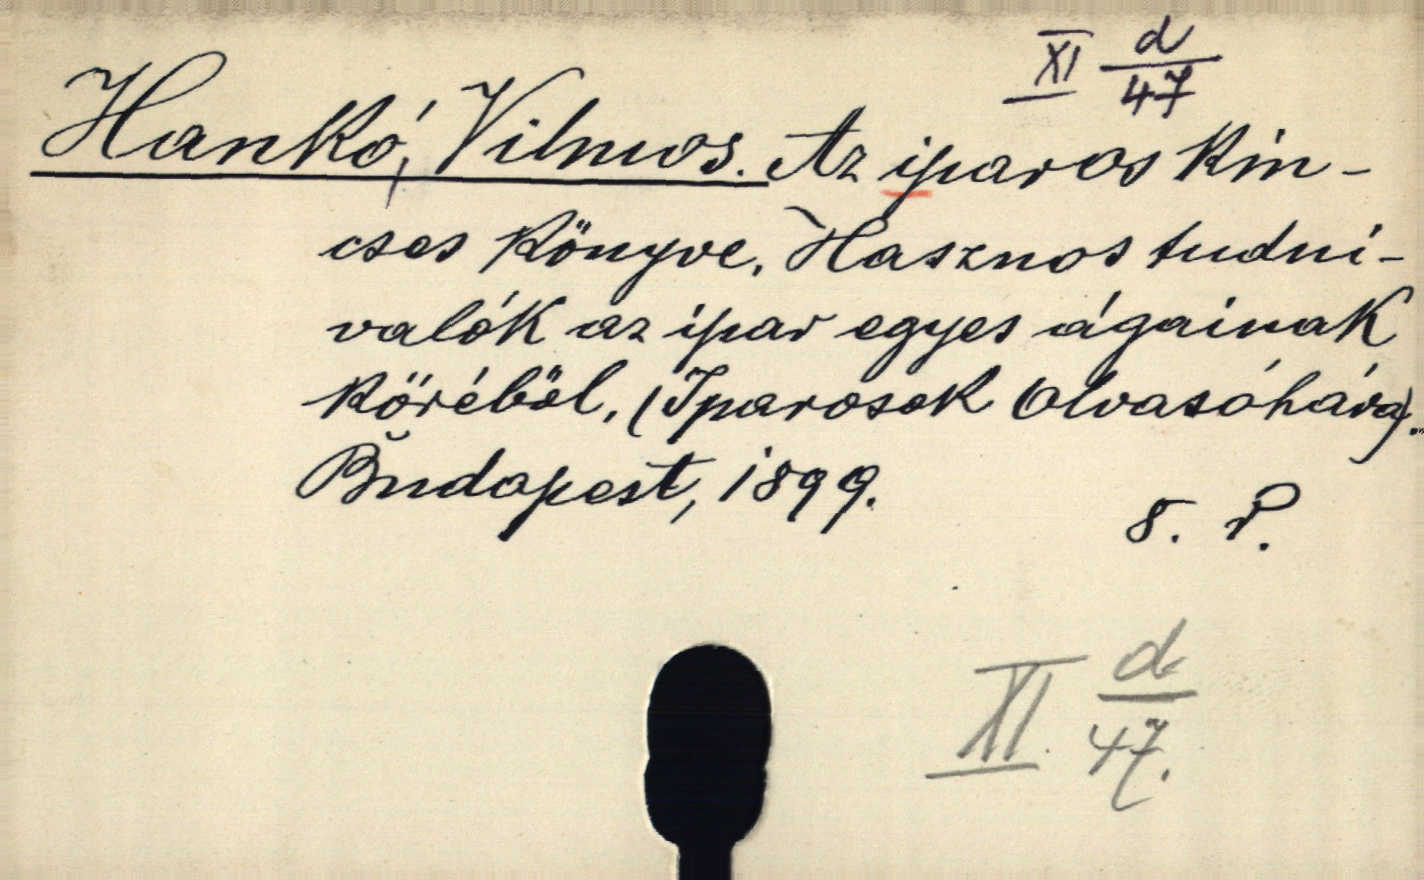 XI d/47
Hankó, Vilmos. Az iparos kin-
cses könyve. Hasznos tudni-
valók az ipar egyes ágainak
köréből. (Iparosok Olvasótára).
Budapest, 1899.
8. r.
XI. d/47.